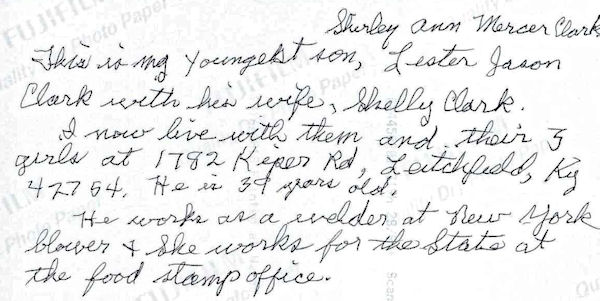 Shirley Ann Mercer Clark
This is my youngest son, Lester Jason
Clark with his wife, Shelly Clark.
I now live with them and their 3
girls at 1782 Kiper Rd, Leitchfield, Ky
42754. He is 39 years old.
He works as a welder at New York
blower & She works for the State at
the food stamp office.
FUJIFILM
Photo Paper